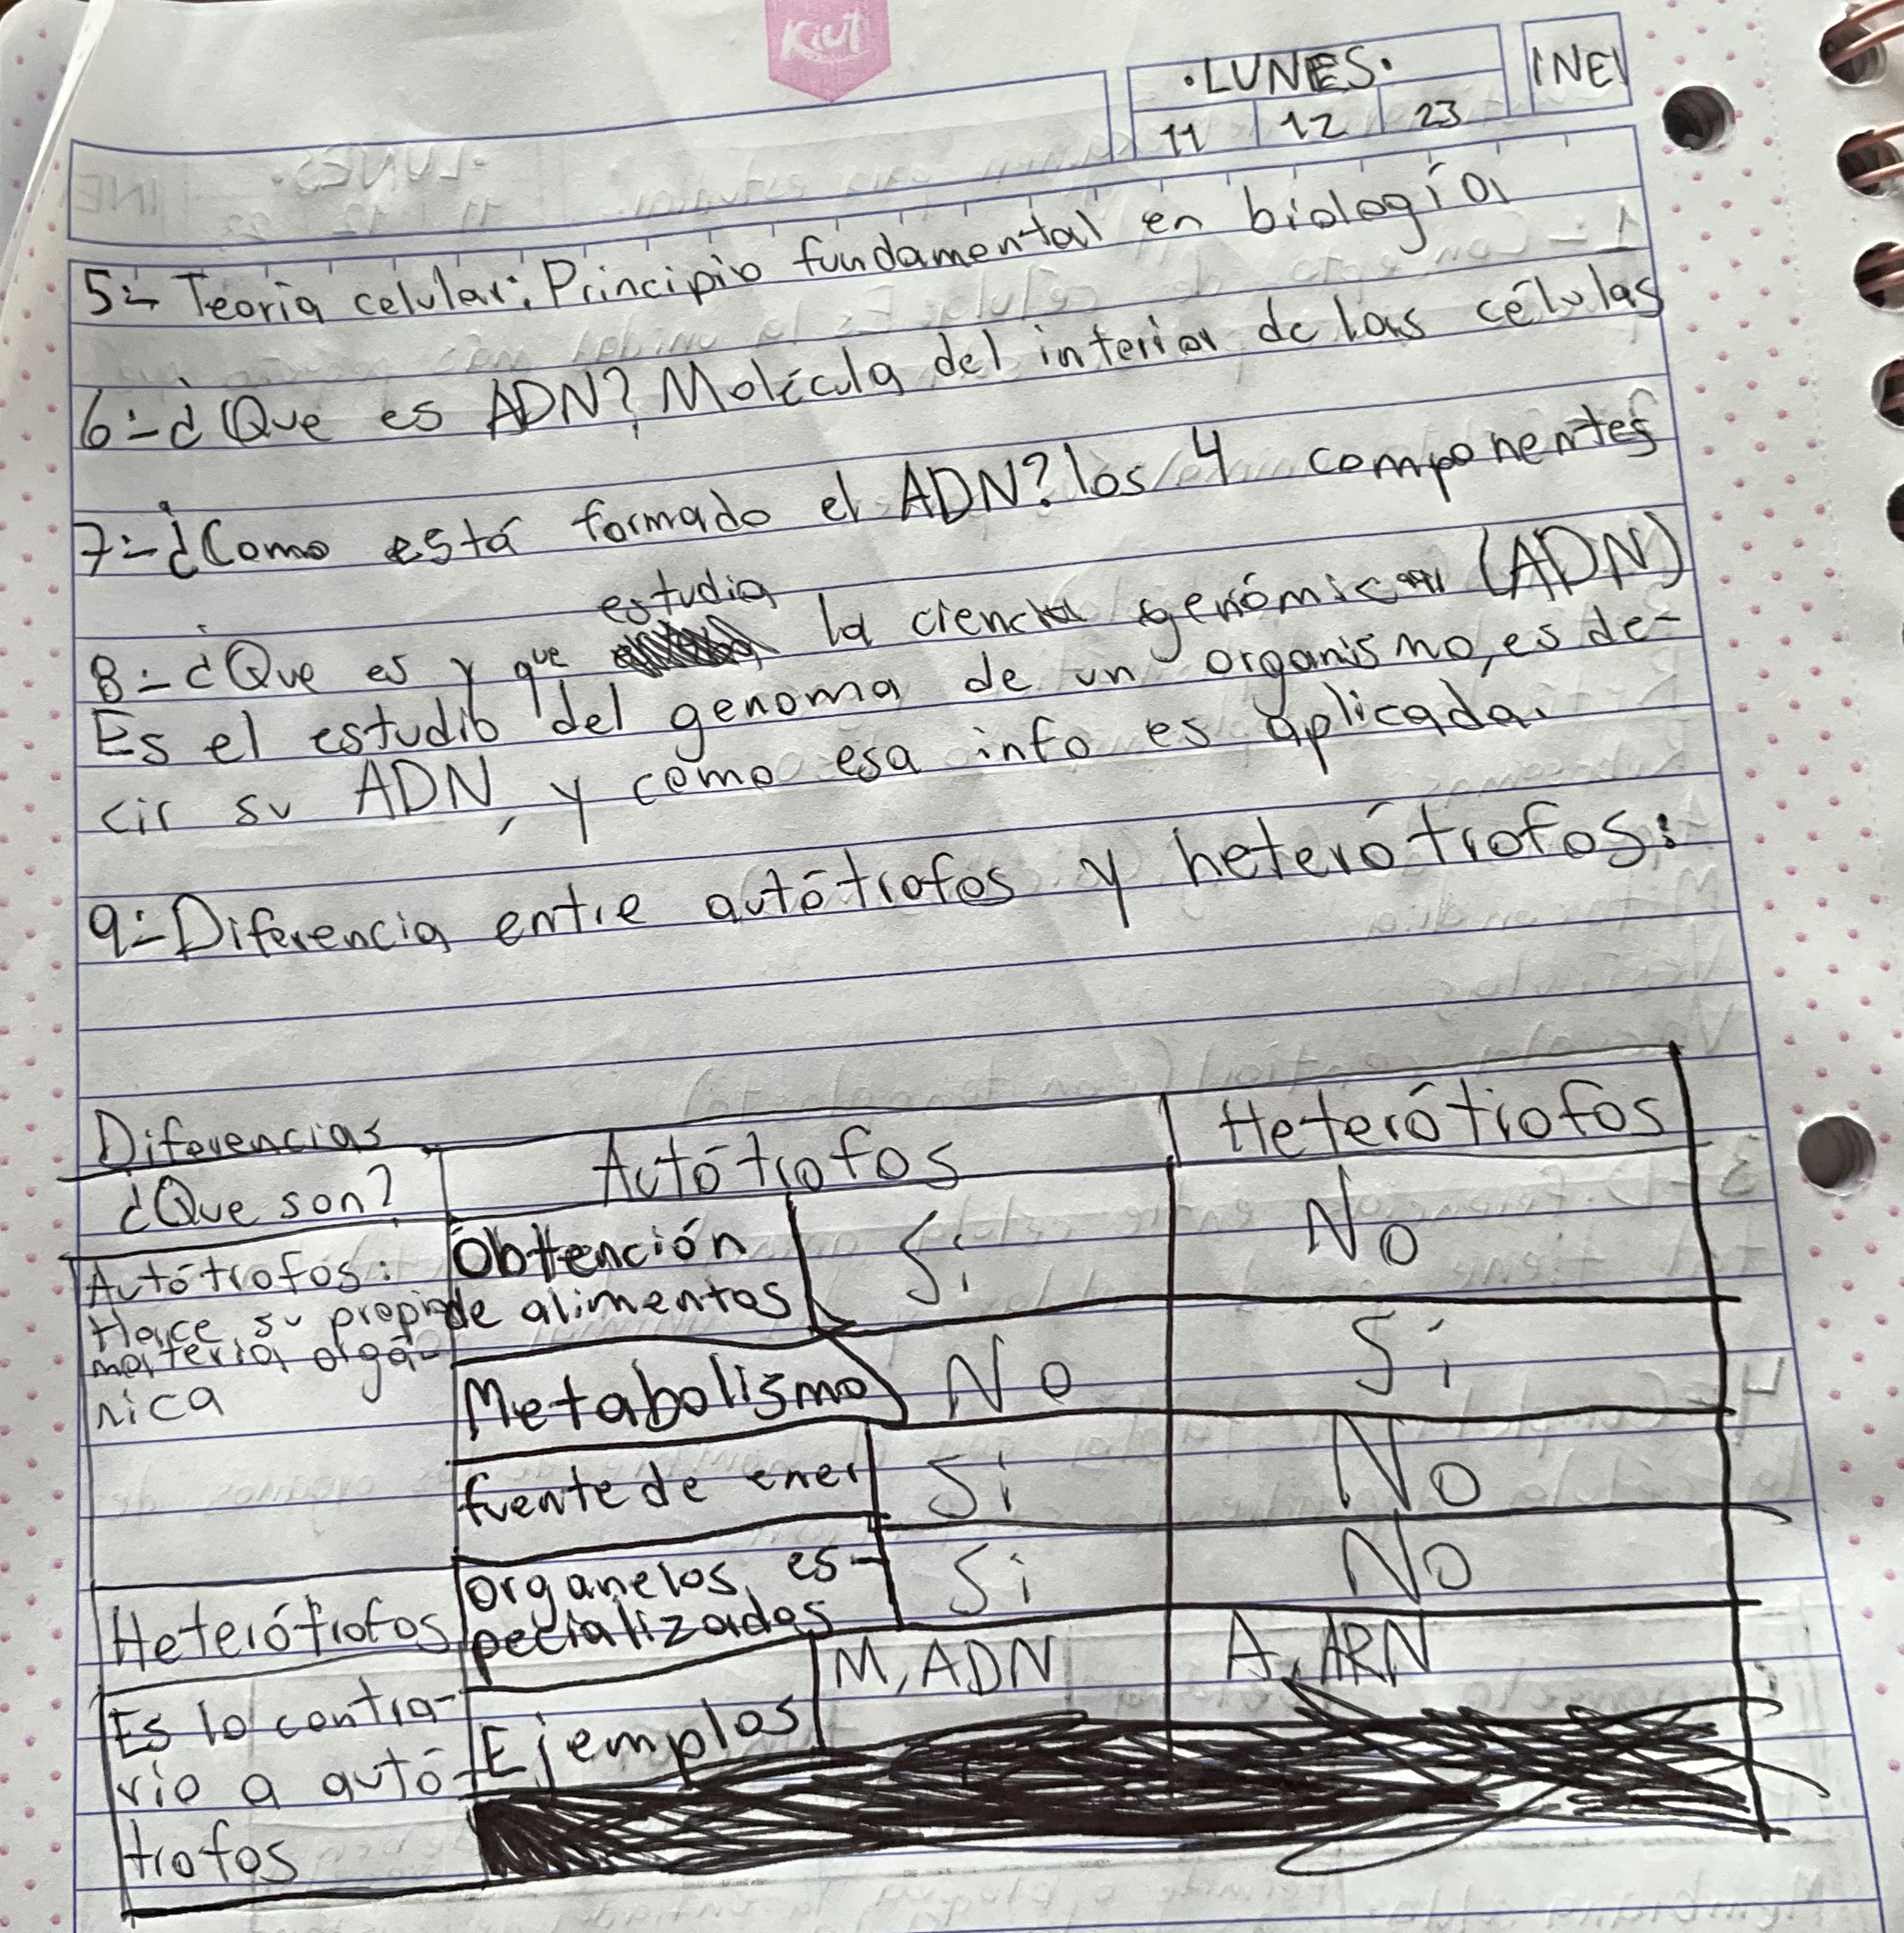 Kiut
·LUNES·
INE
11 12 23
5:- Teoria celular: Principio fundamental en biología
6:-¿Que es ADN? Molécula del interior de las células
7:-¿Como está formado el ADN? los 4 componentes
estudia
8:-¿Que es y que la ciencia genómica (ADN)
Es el estudio del genoma de un organismo, es de-
cir su ADN, y como esa info es aplicada.
9:-Diferencia entre autótrofos y heterótrofos:
Diferencias Autótrofos Heterótrofos
¿Que son?
Autótrofos:
Hace su propia
materia orgá-
nica
Obtención
de alimentos Si No
Metabolismo No Si
fuente de ener Si No
organelos es-
pecializados Si No
Heterótrofos
Es lo contra-
rio a autó-
trofos
Ejemplos M, ADN A, ARN